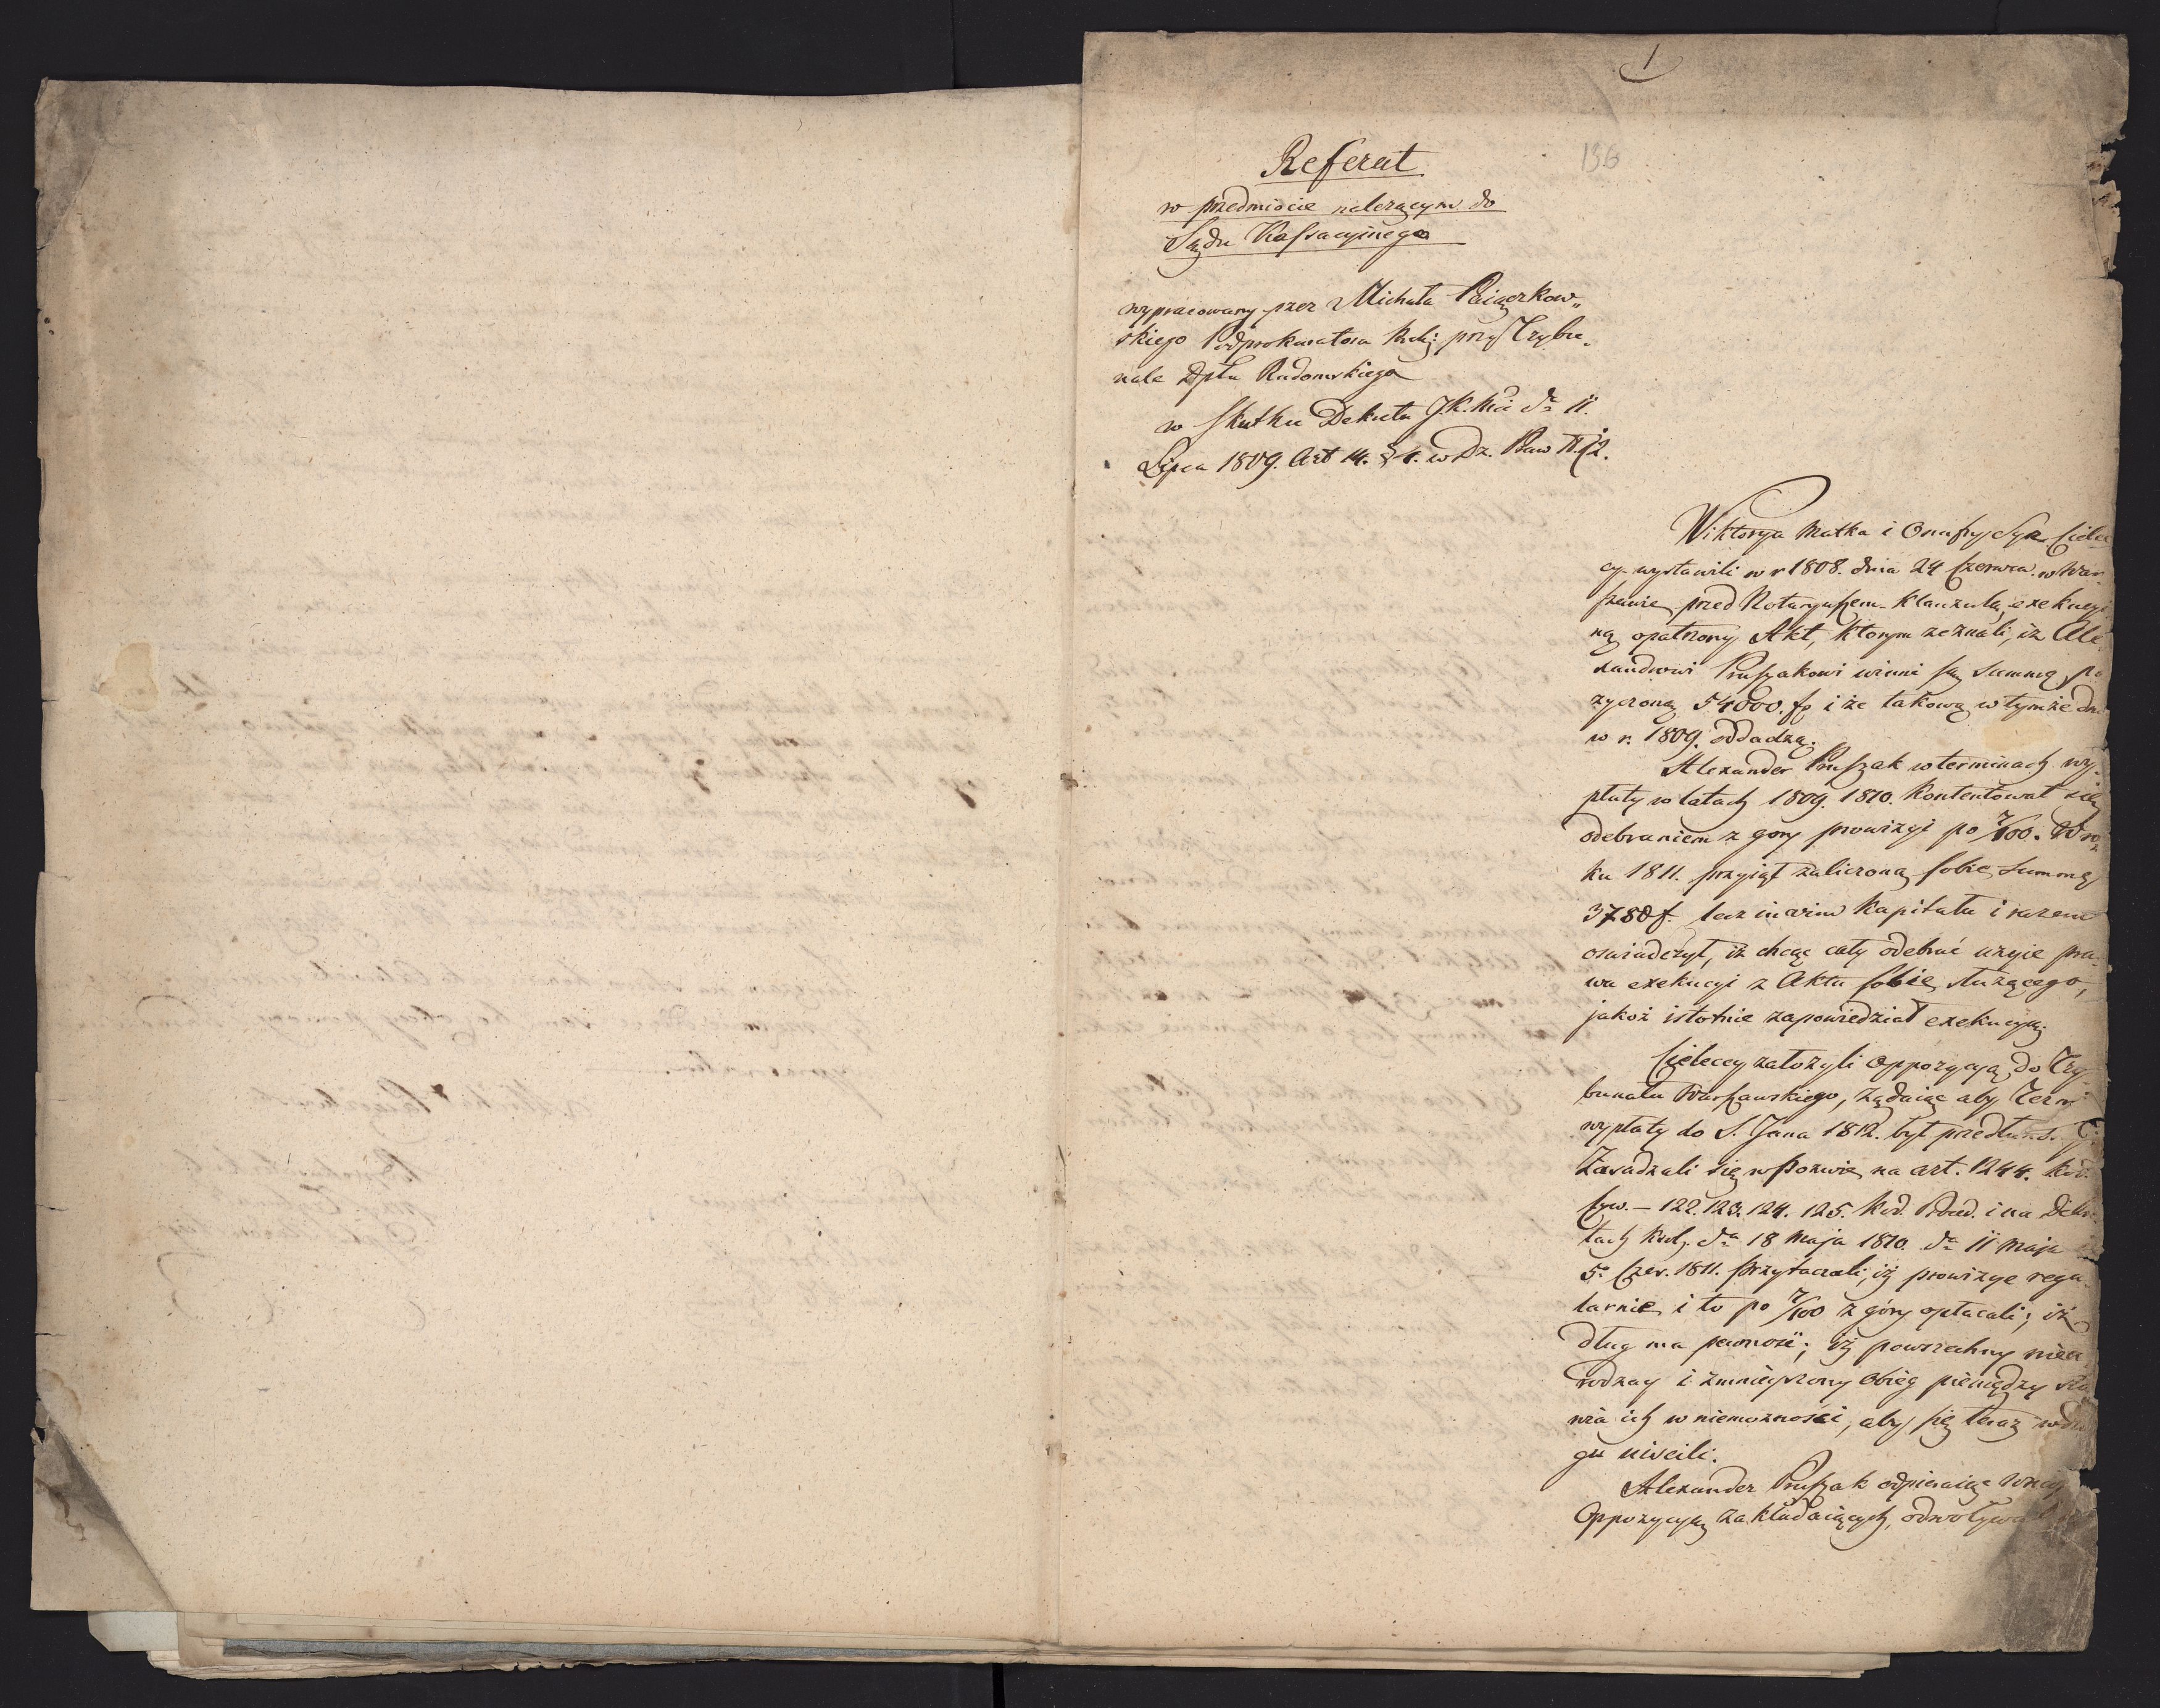 1
136
Referat
w przedmiocie należącym do
Sądu Kassacyinego
wypracowany przez Michała
skiego Podprokuratora Król: przy Trybu„
nale Dptu Radomskiego
w skutku Dekretu J.K.Mci da 11.
Lipca 1809. Art 14. w Dz. Praw
Wiktorya Matka i Onufry Syn Ciele
cy wystawili w r 1808. dnia 24 Czerwca. w War„
szawie przed Notaryuszem Klauzulą exekucyi
ną opatrzony Akt, ktorym zeznali, iż Ale„
xandrowi Pruszakowi winni są summę po
zyczoną 54000. fp i że takową w tymże dniu
w r. 1809. oddadzą.
Alexander Pruszak w terminach wy„
płaty w latach 1809. 1810. kontentował się
odebraniem z gory prowizyi po 7/100. W ro„
ku 1811. przyiął zaliczoną sobie summę
3780 f. lecz in vim kapitału i razem
oswiadczył, iż chcąc cały odebrać użyie pra„
wa exekucyi z Aktu sobie służącego,
jakoż istotnie zapowiedział exekucyą.
Cieleccy założyli oppozycyą do Try„
bunału Warszawskiego, żądaiąc aby Term
wypłaty do S. Jana 1812. był przedłuż.
Zasadzali się w pozwie na art. 1244. Kod.
Cyw. – 122. 123. 124. 125. Kod. Proced. i na Dekre
tach Król. da 18 Maja 1810. da 11 Maja
5. Czer. 1811. Przytaczali, iż prowizye regu„
larnie i to po 7/100 z góry opłacali; iż
dług ma pewność; iż powszechny nieu„
rodzay i zmnieyszony obieg pieniędzy sta„
wia ich w niemożności, aby się teraz w dłu
gu uiścili.
Alexander Pruszak odpieraiąc
Oppozycyą zakładaiących, odwoływał